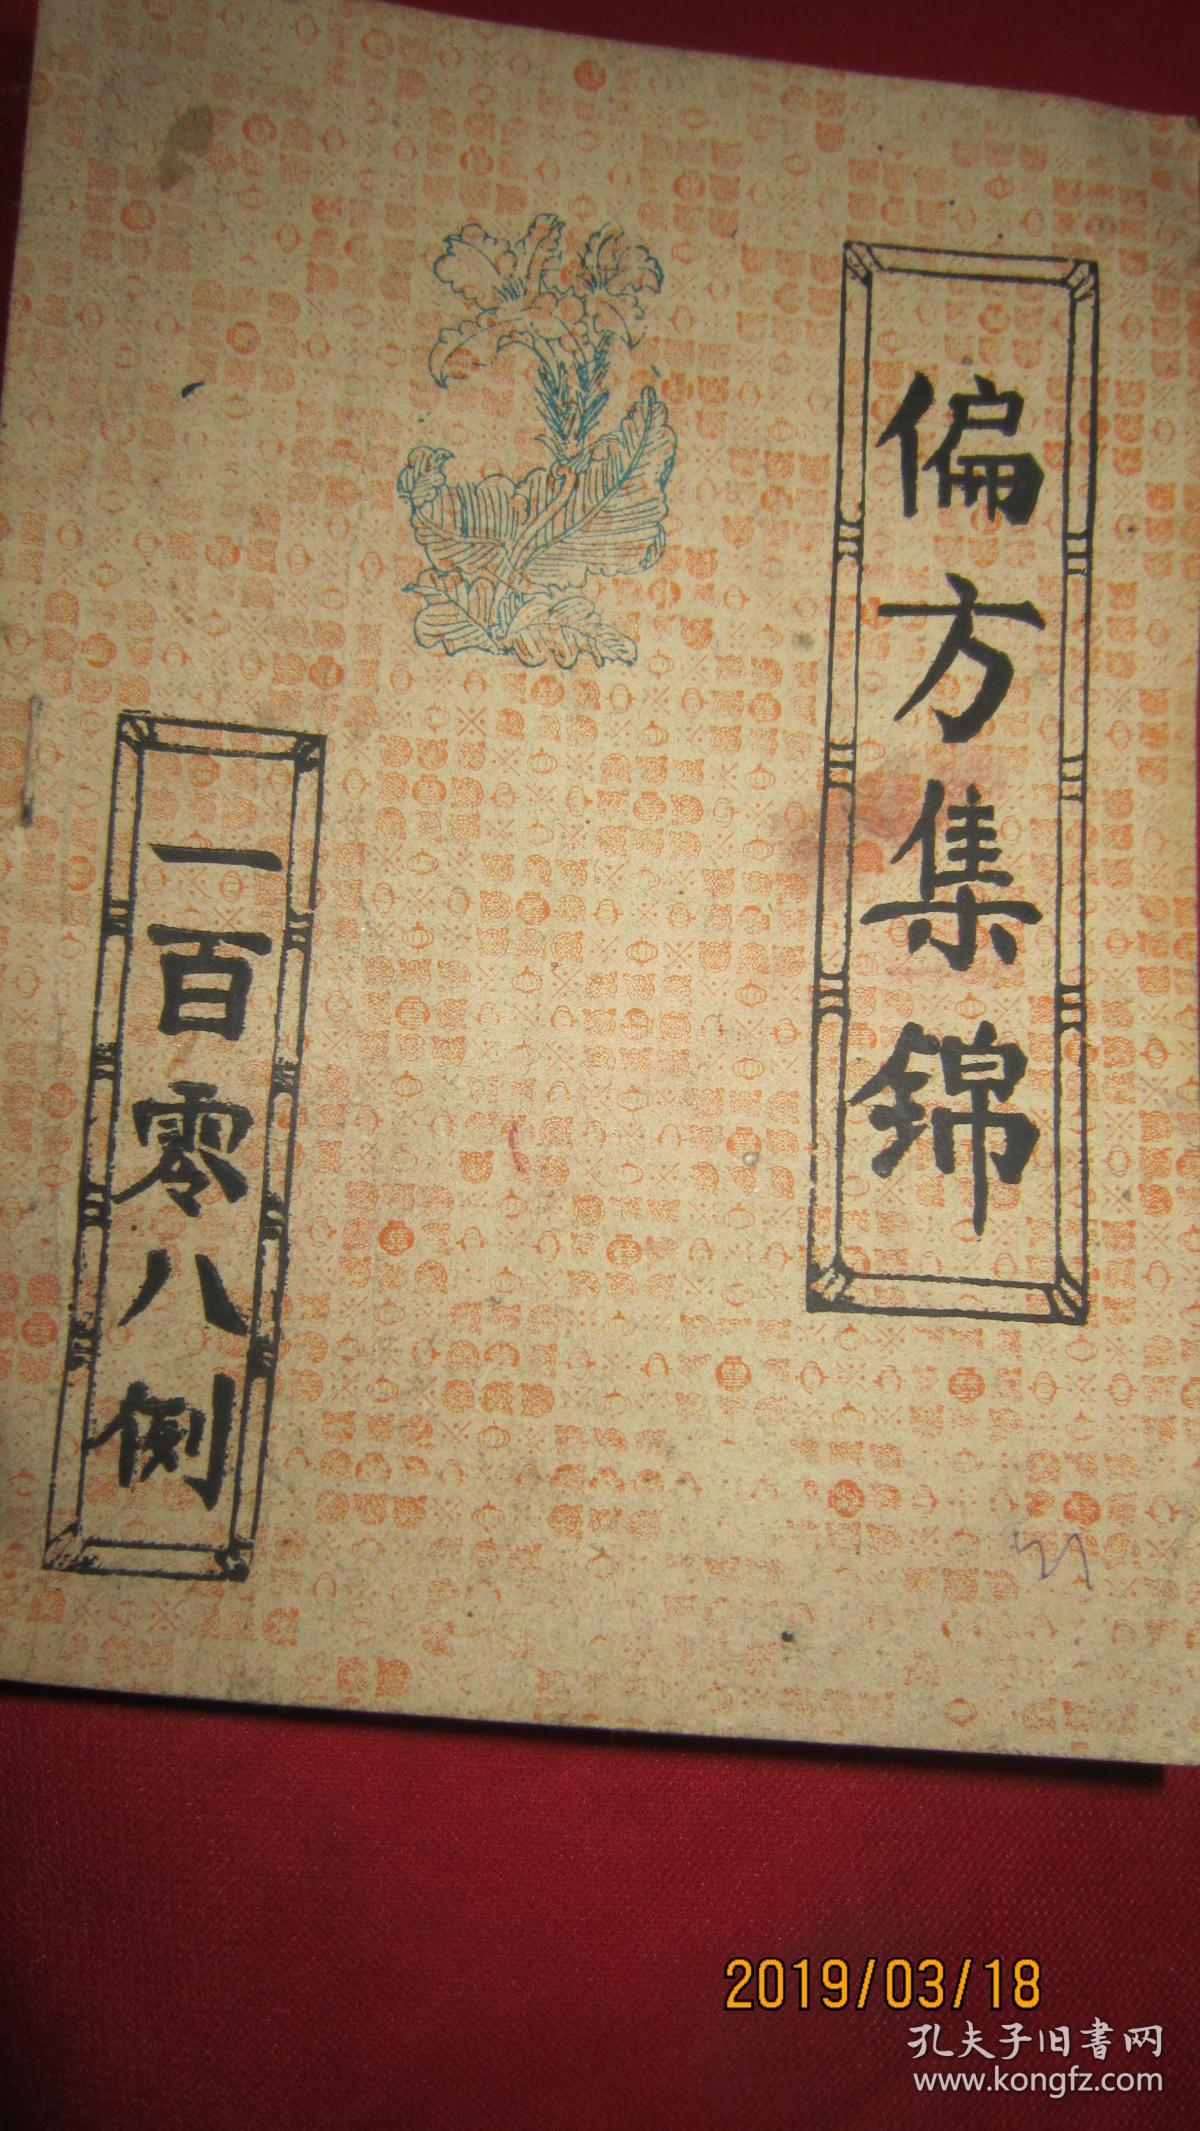 偏方集锦
一百零八例
2019/03/18
孔夫子旧書网
www.kongfz.com